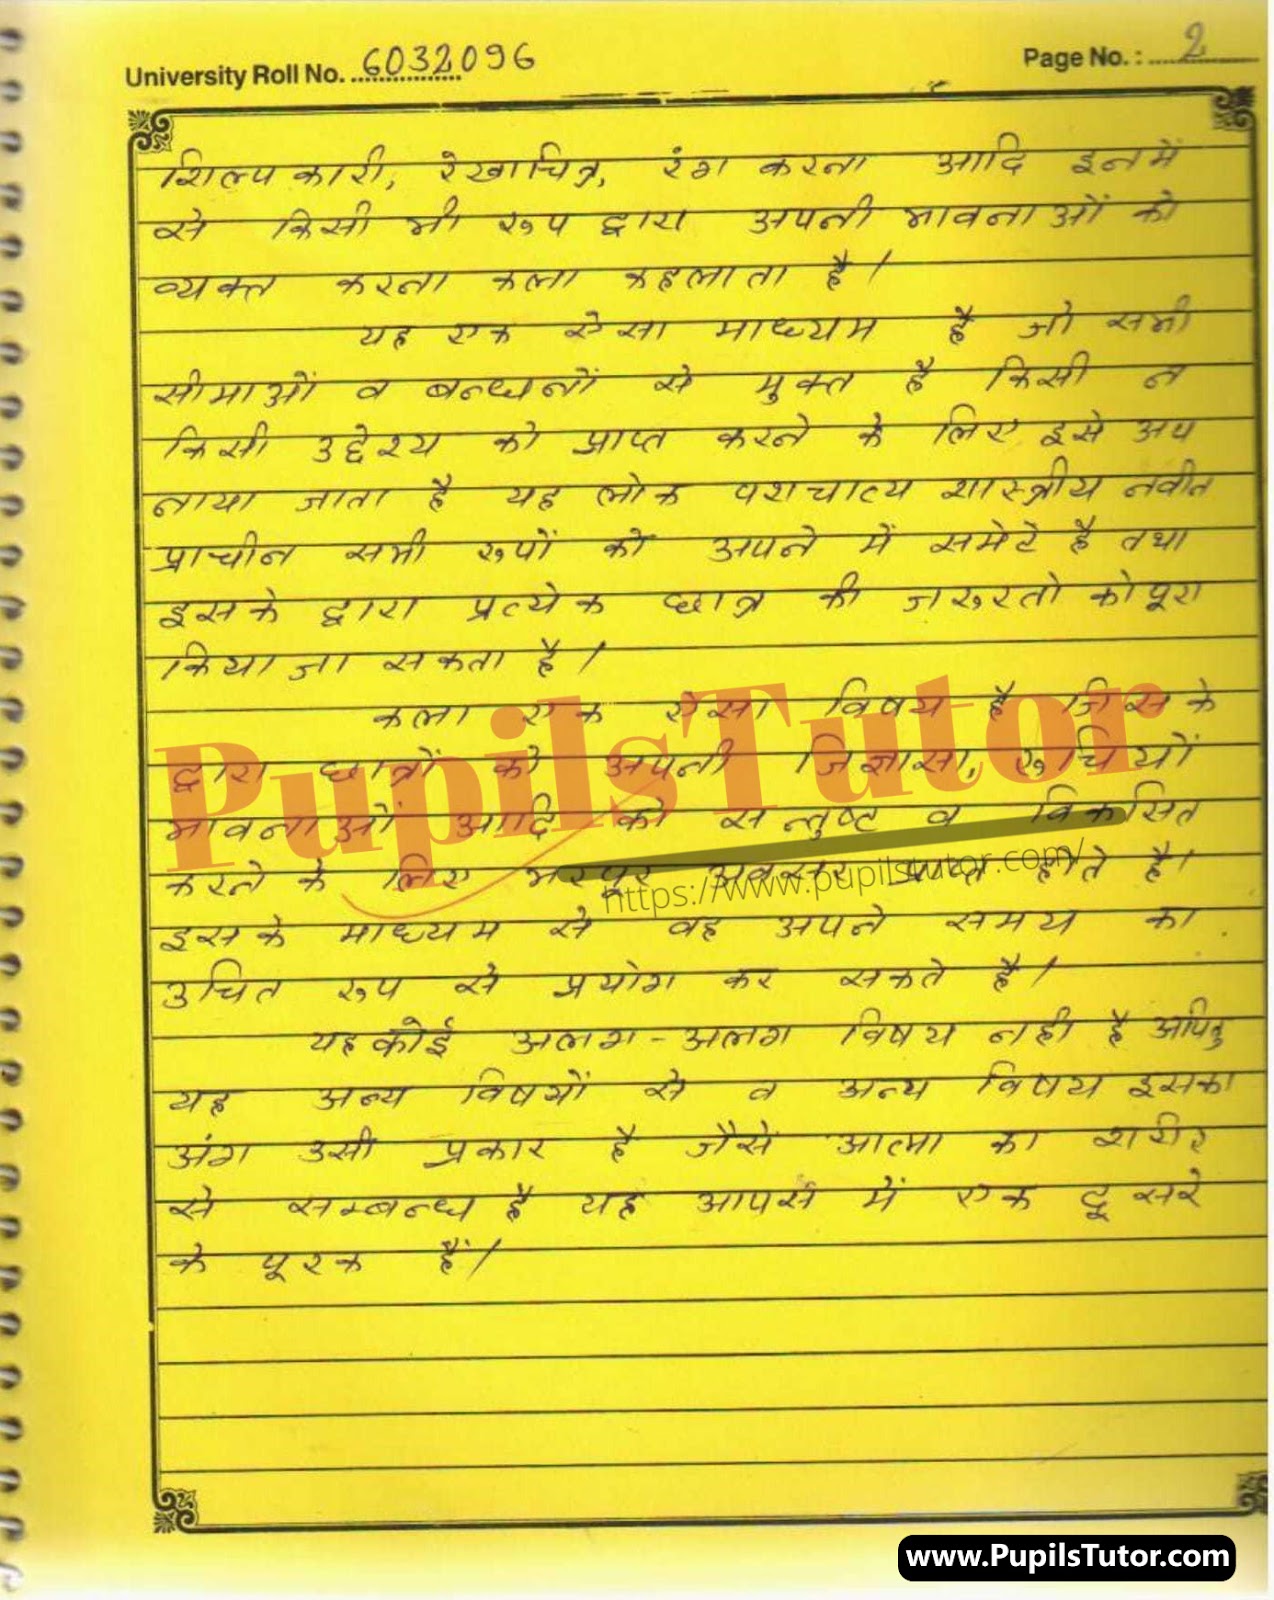 University Roll No. 6032096
Page No. : 2
शिल्पकारी, रेखाचित्र, रंग करना आदि इनमें
से किसी भी रुप द्वारा अपनी भावनाओं को
व्यक्त करना कला कहलाता है।
यह एक ऐसा माध्यम है जो सभी
सीमाओं व बन्धनों से मुक्त है किसी न
किसी उद्देश्य को प्राप्त करने के लिए इसे अप
नाया जाता है यह लोक पशचात्य शास्त्रीय नवीन
प्राचीन सभी रुपों को अपने में समेटे है तथा
इसके द्वारा प्रत्येक छात्र की जरुरतो को पूरा
किया जा सकता है।
कला एक ऐसा विषय है जिसके
द्वारा छात्रों को अपनी जिज्ञासा, रुचियों
भावनाओं आदि को सन्तुष्ट व विकसित
करने के लिए भरपूर अवसर प्राप्त होते है।
इसके माध्यम से वह अपने समय का
उचित रुप से प्रयोग कर सकते है।
यह कोई अलग-अलग विषय नही है अपितु
यह अन्य विषयों से व अन्य विषय इसका
अंग उसी प्रकार है जैसे आत्मा का शरीर
से सम्बन्ध है यह आपस में एक दूसरे
के पूरक हैं।
PupilsTutor
https://www.pupilstutor.com/
www.PupilsTutor.com